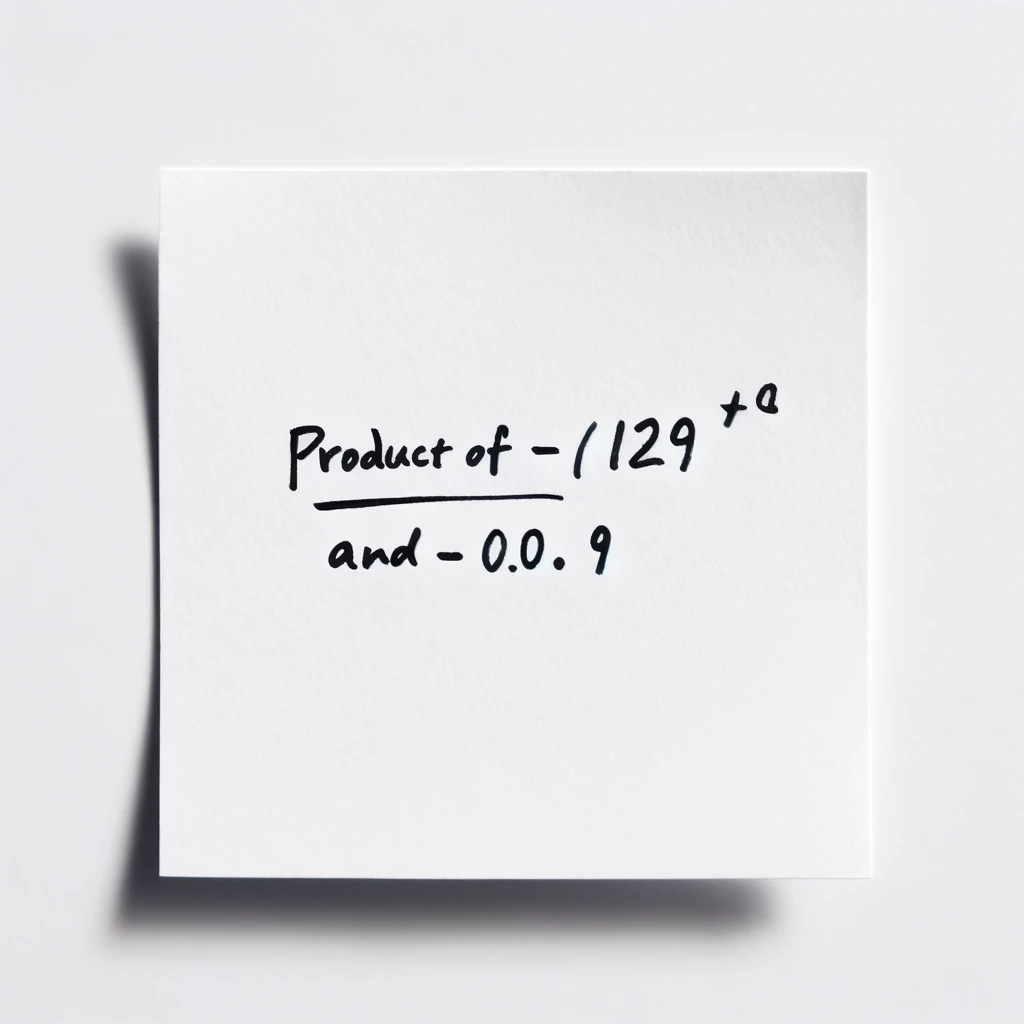 Product of - / 129
and - 0.0. 9